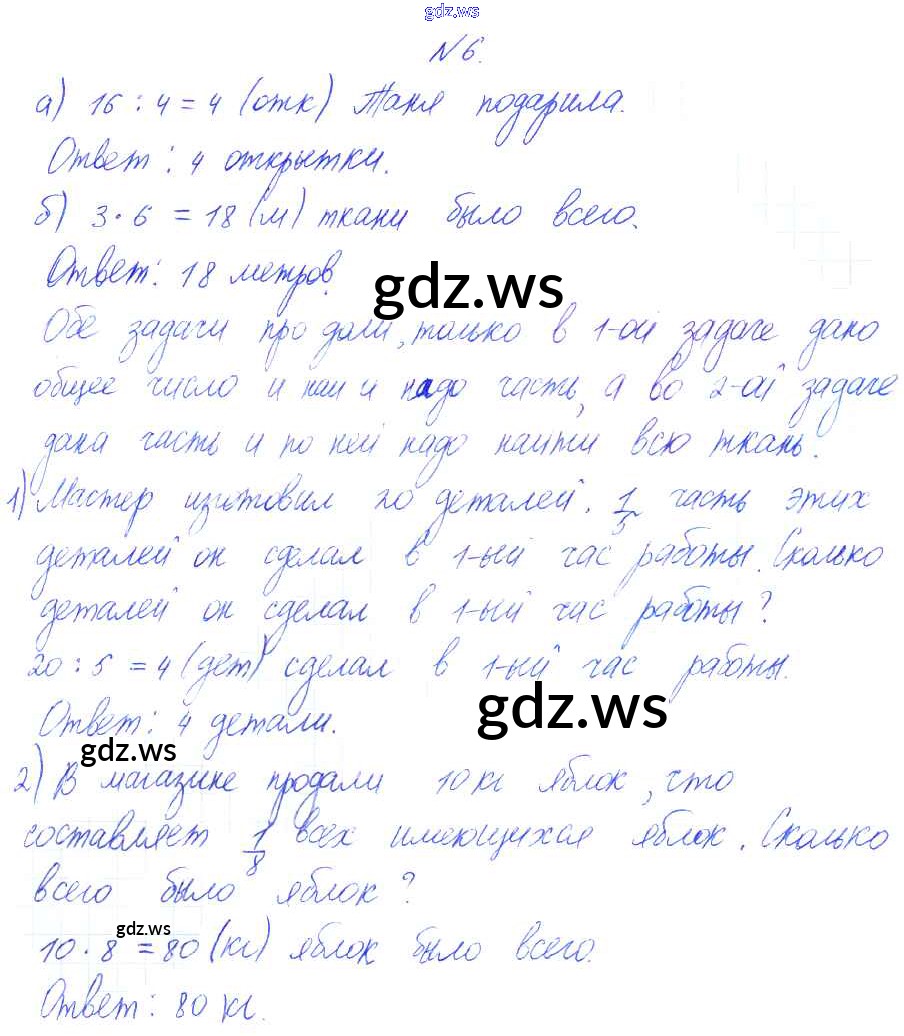 gdz.ws
№6.
а) 16 : 4 = 4 (отк) Таня подарила.
Ответ: 4 открытки.
б) 3 · 6 = 18 (м) ткани было всего.
Ответ: 18 метров.
gdz.ws
Обе задачи про доли, только в 1-ой задаче дано
общее число и надо часть, а во 2-ой задаче
дана часть и по ней надо найти всю ткань.
1) Мастер изготовил 20 деталей. 1/5 часть этих
деталей он сделал в 1-ый час работы. Сколько
деталей он сделал в 1-ый час работы?
20 : 5 = 4 (дет) сделал в 1-ый час работы.
gdz.ws
Ответ: 4 детали.
gdz.ws
2) В магазине продали 10 кг яблок, что
составляет 1/8 всех имеющихся яблок. Сколько
всего было яблок?
gdz.ws
10 · 8 = 80 (кг) яблок было всего.
Ответ: 80 кг.